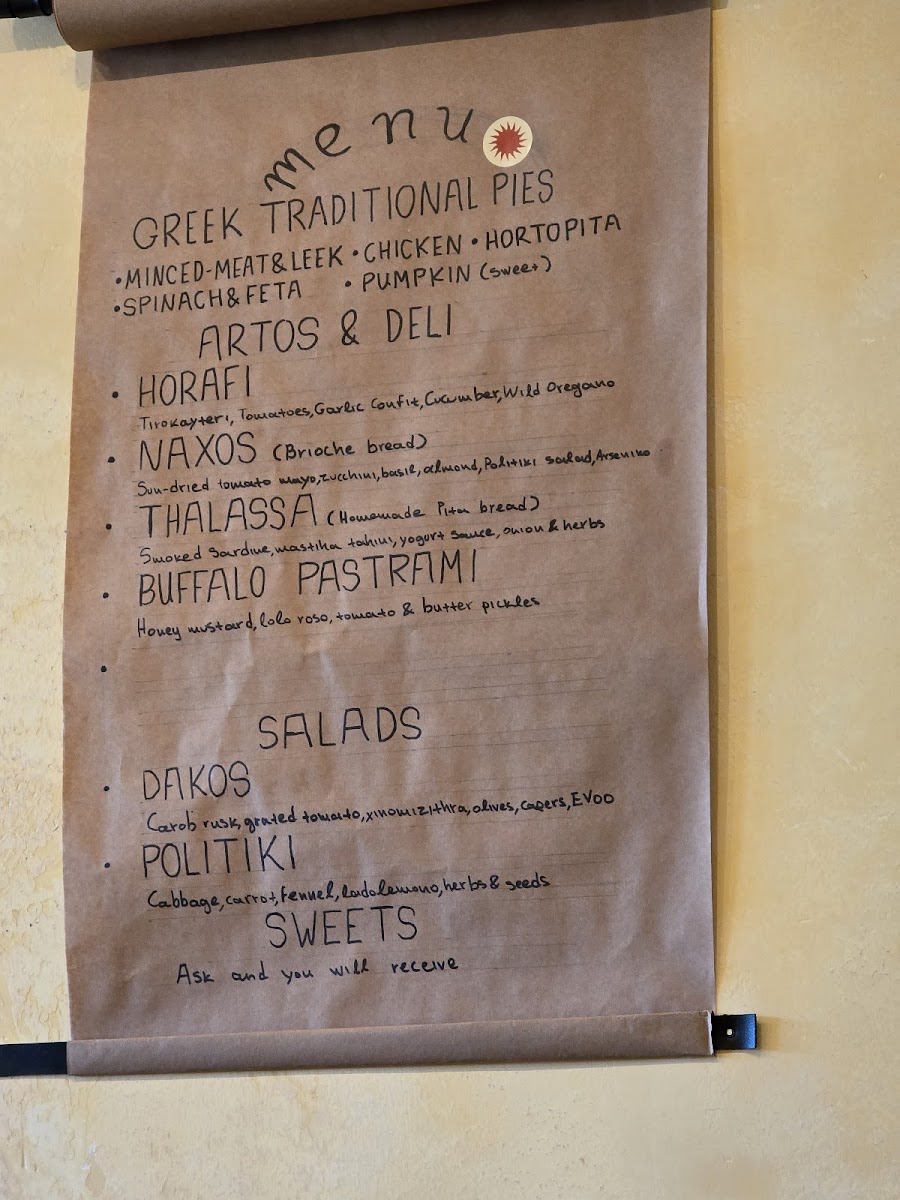 menu
GREEK TRADITIONAL PIES
• MINCED-MEAT & LEEK • CHICKEN • HORTOPITA
• SPINACH & FETA • PUMPKIN (sweet)
ARTOS & DELI
• HORAFI
Tirokayteri, Tomatoes, Garlic Confit, Cucumber, Wild Oregano
• NAXOS (Brioche bread)
Sun-dried tomato mayo, zucchini, basil, almond, Politiki salad, Arseniko
• THALASSA (Homemade Pita bread)
Smoked Sardine, mastiha tahini, yogurt sauce, onion & herbs
• BUFFALO PASTRAMI
Honey mustard, lolo roso, tomato & butter pickles
•
SALADS
• DAKOS
Carob rusk, grated tomato, xinomizithra, olives, capers, EVOO
• POLITIKI
Cabbage, carrot, fennel, ladolemono, herbs & seeds
SWEETS
Ask and you will receive